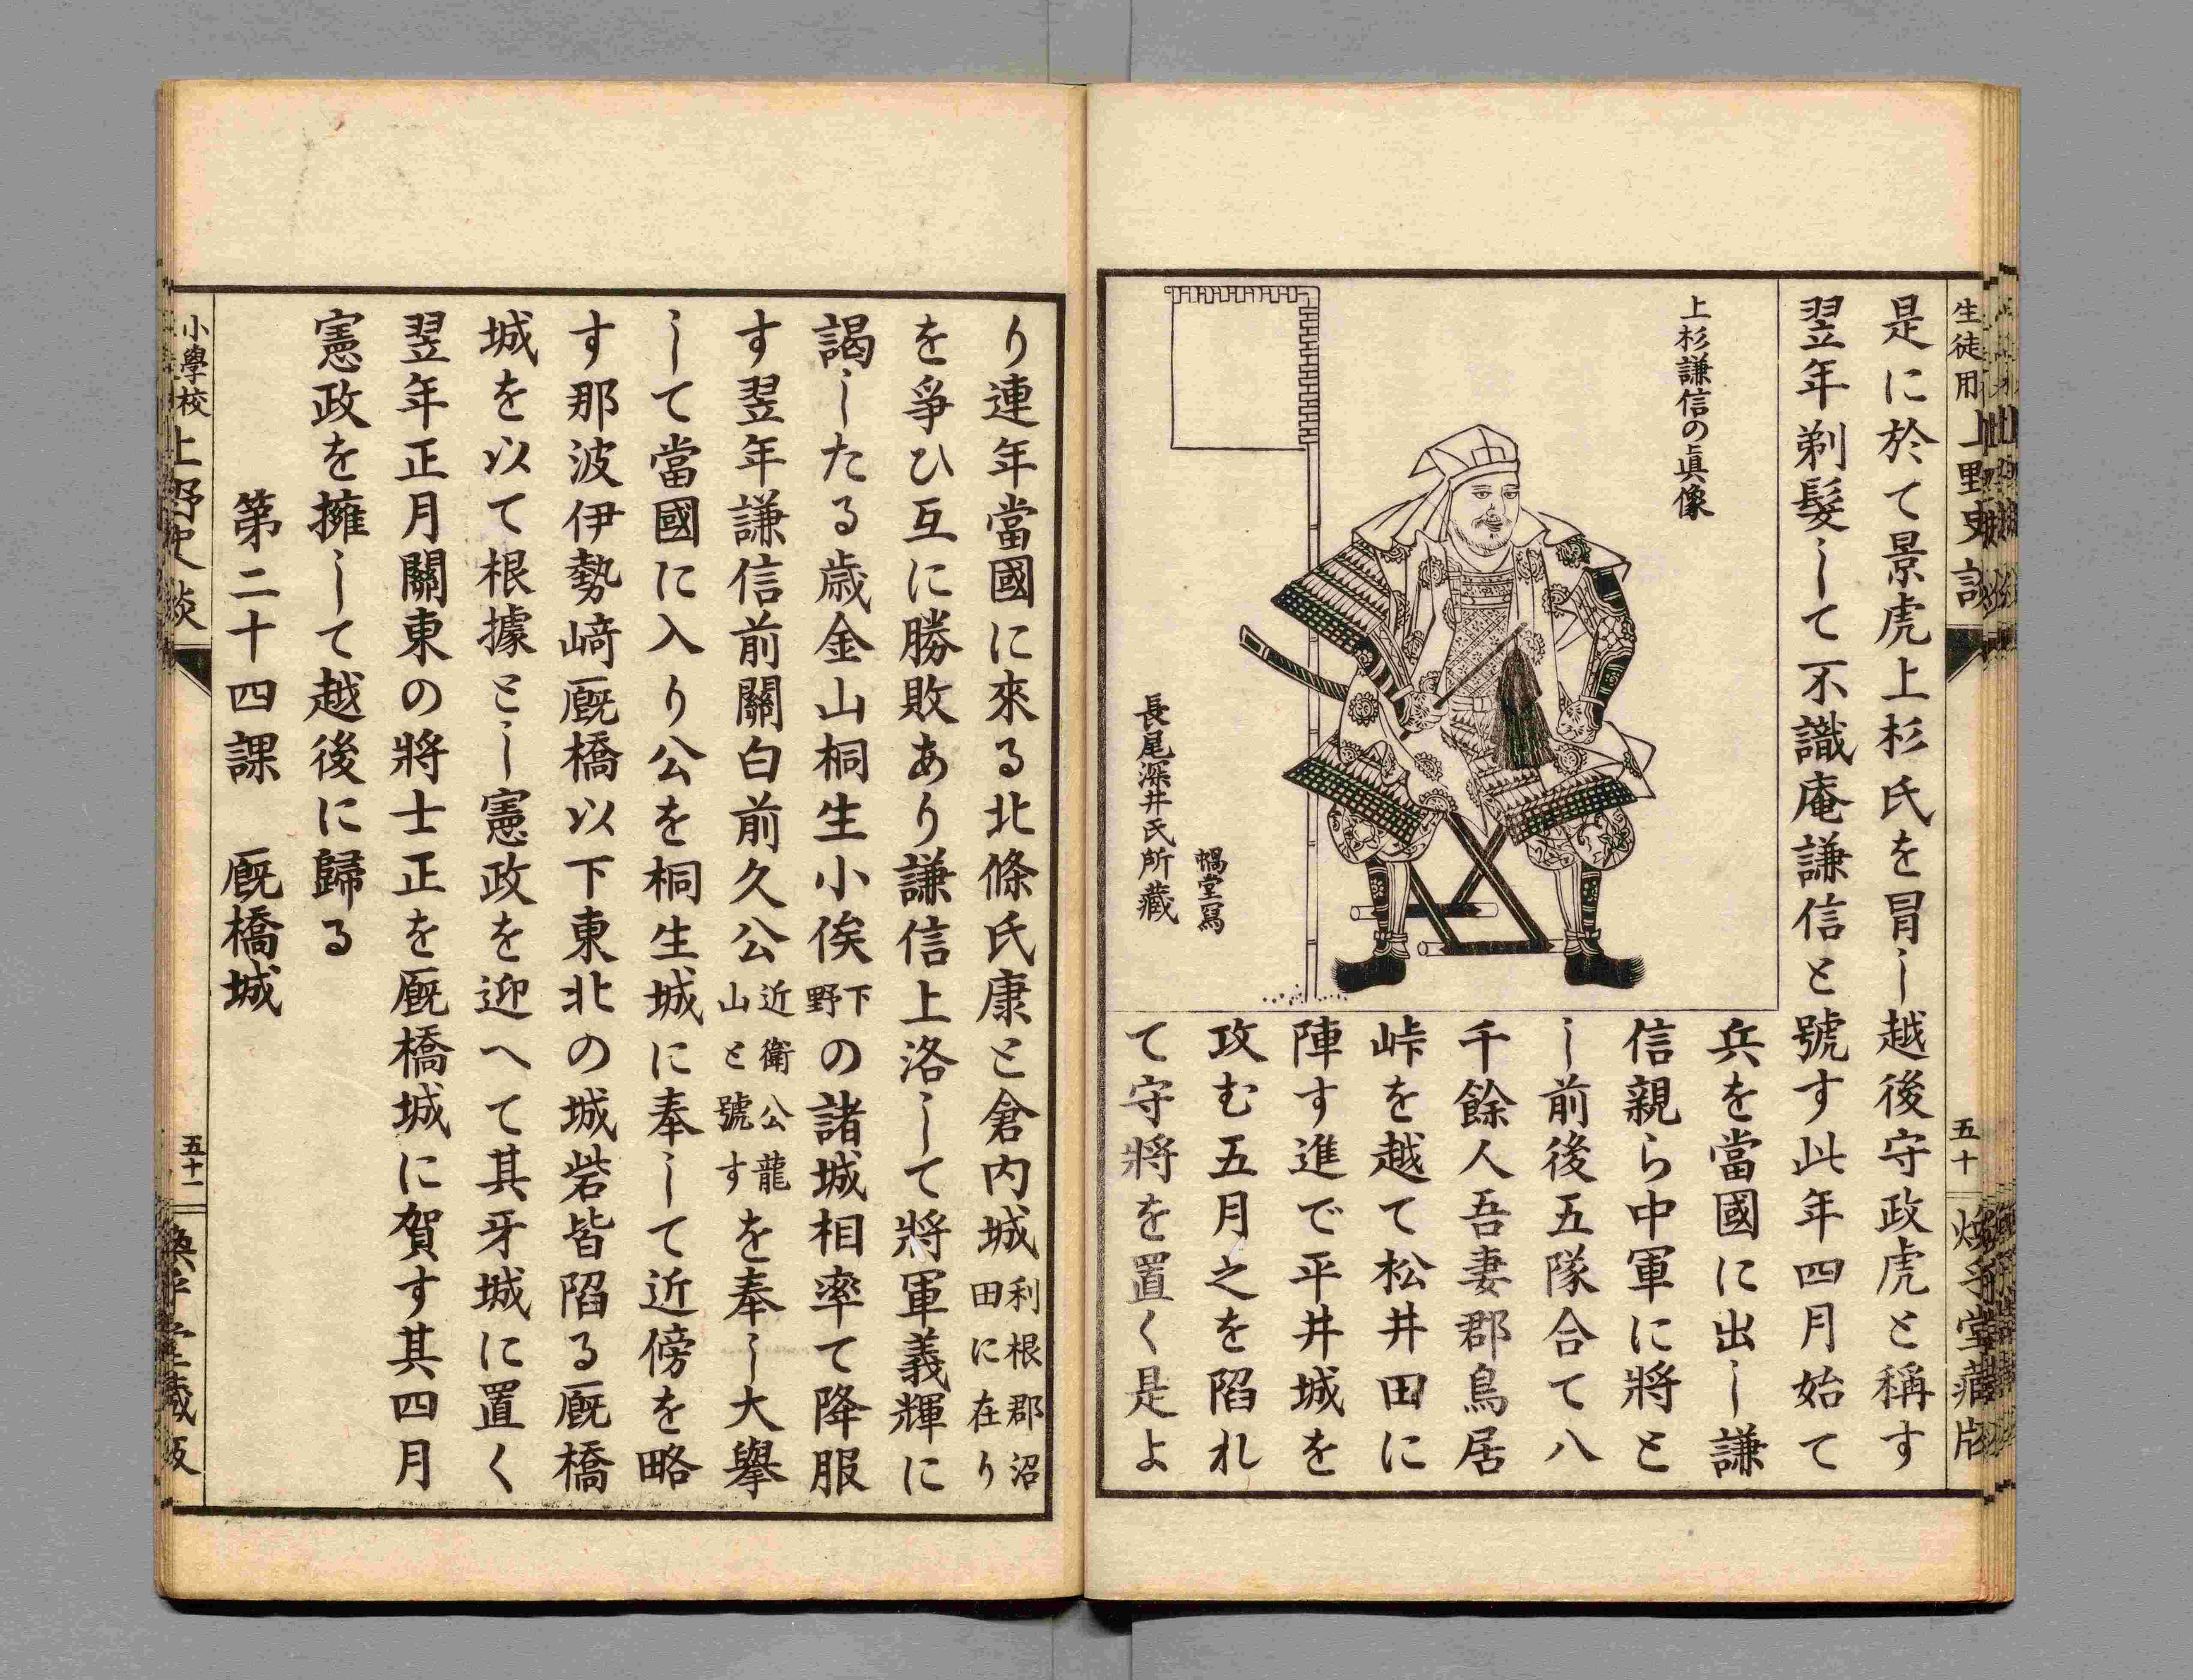 生徒用 上野史談
五十
煥乎堂藏版
是に於て景虎上杉氏を冒し越後守政虎と稱す
翌年剃髮して不識庵謙信と號す此年四月始て
上杉謙信の眞像
蝸堂寫
長尾深井氏所藏
兵を當國に出し謙
信親ら中軍に將と
し前後五隊合て八
千餘人吾妻郡鳥居
峠を越て松井田に
陣す進で平井城を
攻む五月之を陷れ
て守將を置く是よ
り連年當國に來る北條氏康と倉内城利根郡沼田に在り
を爭ひ互に勝敗あり謙信上洛して將軍義輝に
謁したる歳金山桐生小俣下野の諸城相率て降服
す翌年謙信前關白前久公近衛公龍山と號すを奉し大擧
して當國に入り公を桐生城に奉して近傍を略
す那波伊勢﨑厩橋以下東北の城砦皆陷る厩橋
城を以て根據とし憲政を迎へて其牙城に置く
翌年正月關東の將士正を厩橋城に賀す其四月
憲政を擁して越後に歸る
第二十四課 厩橋城
小學校 上野史談
五十一
煥乎堂藏版